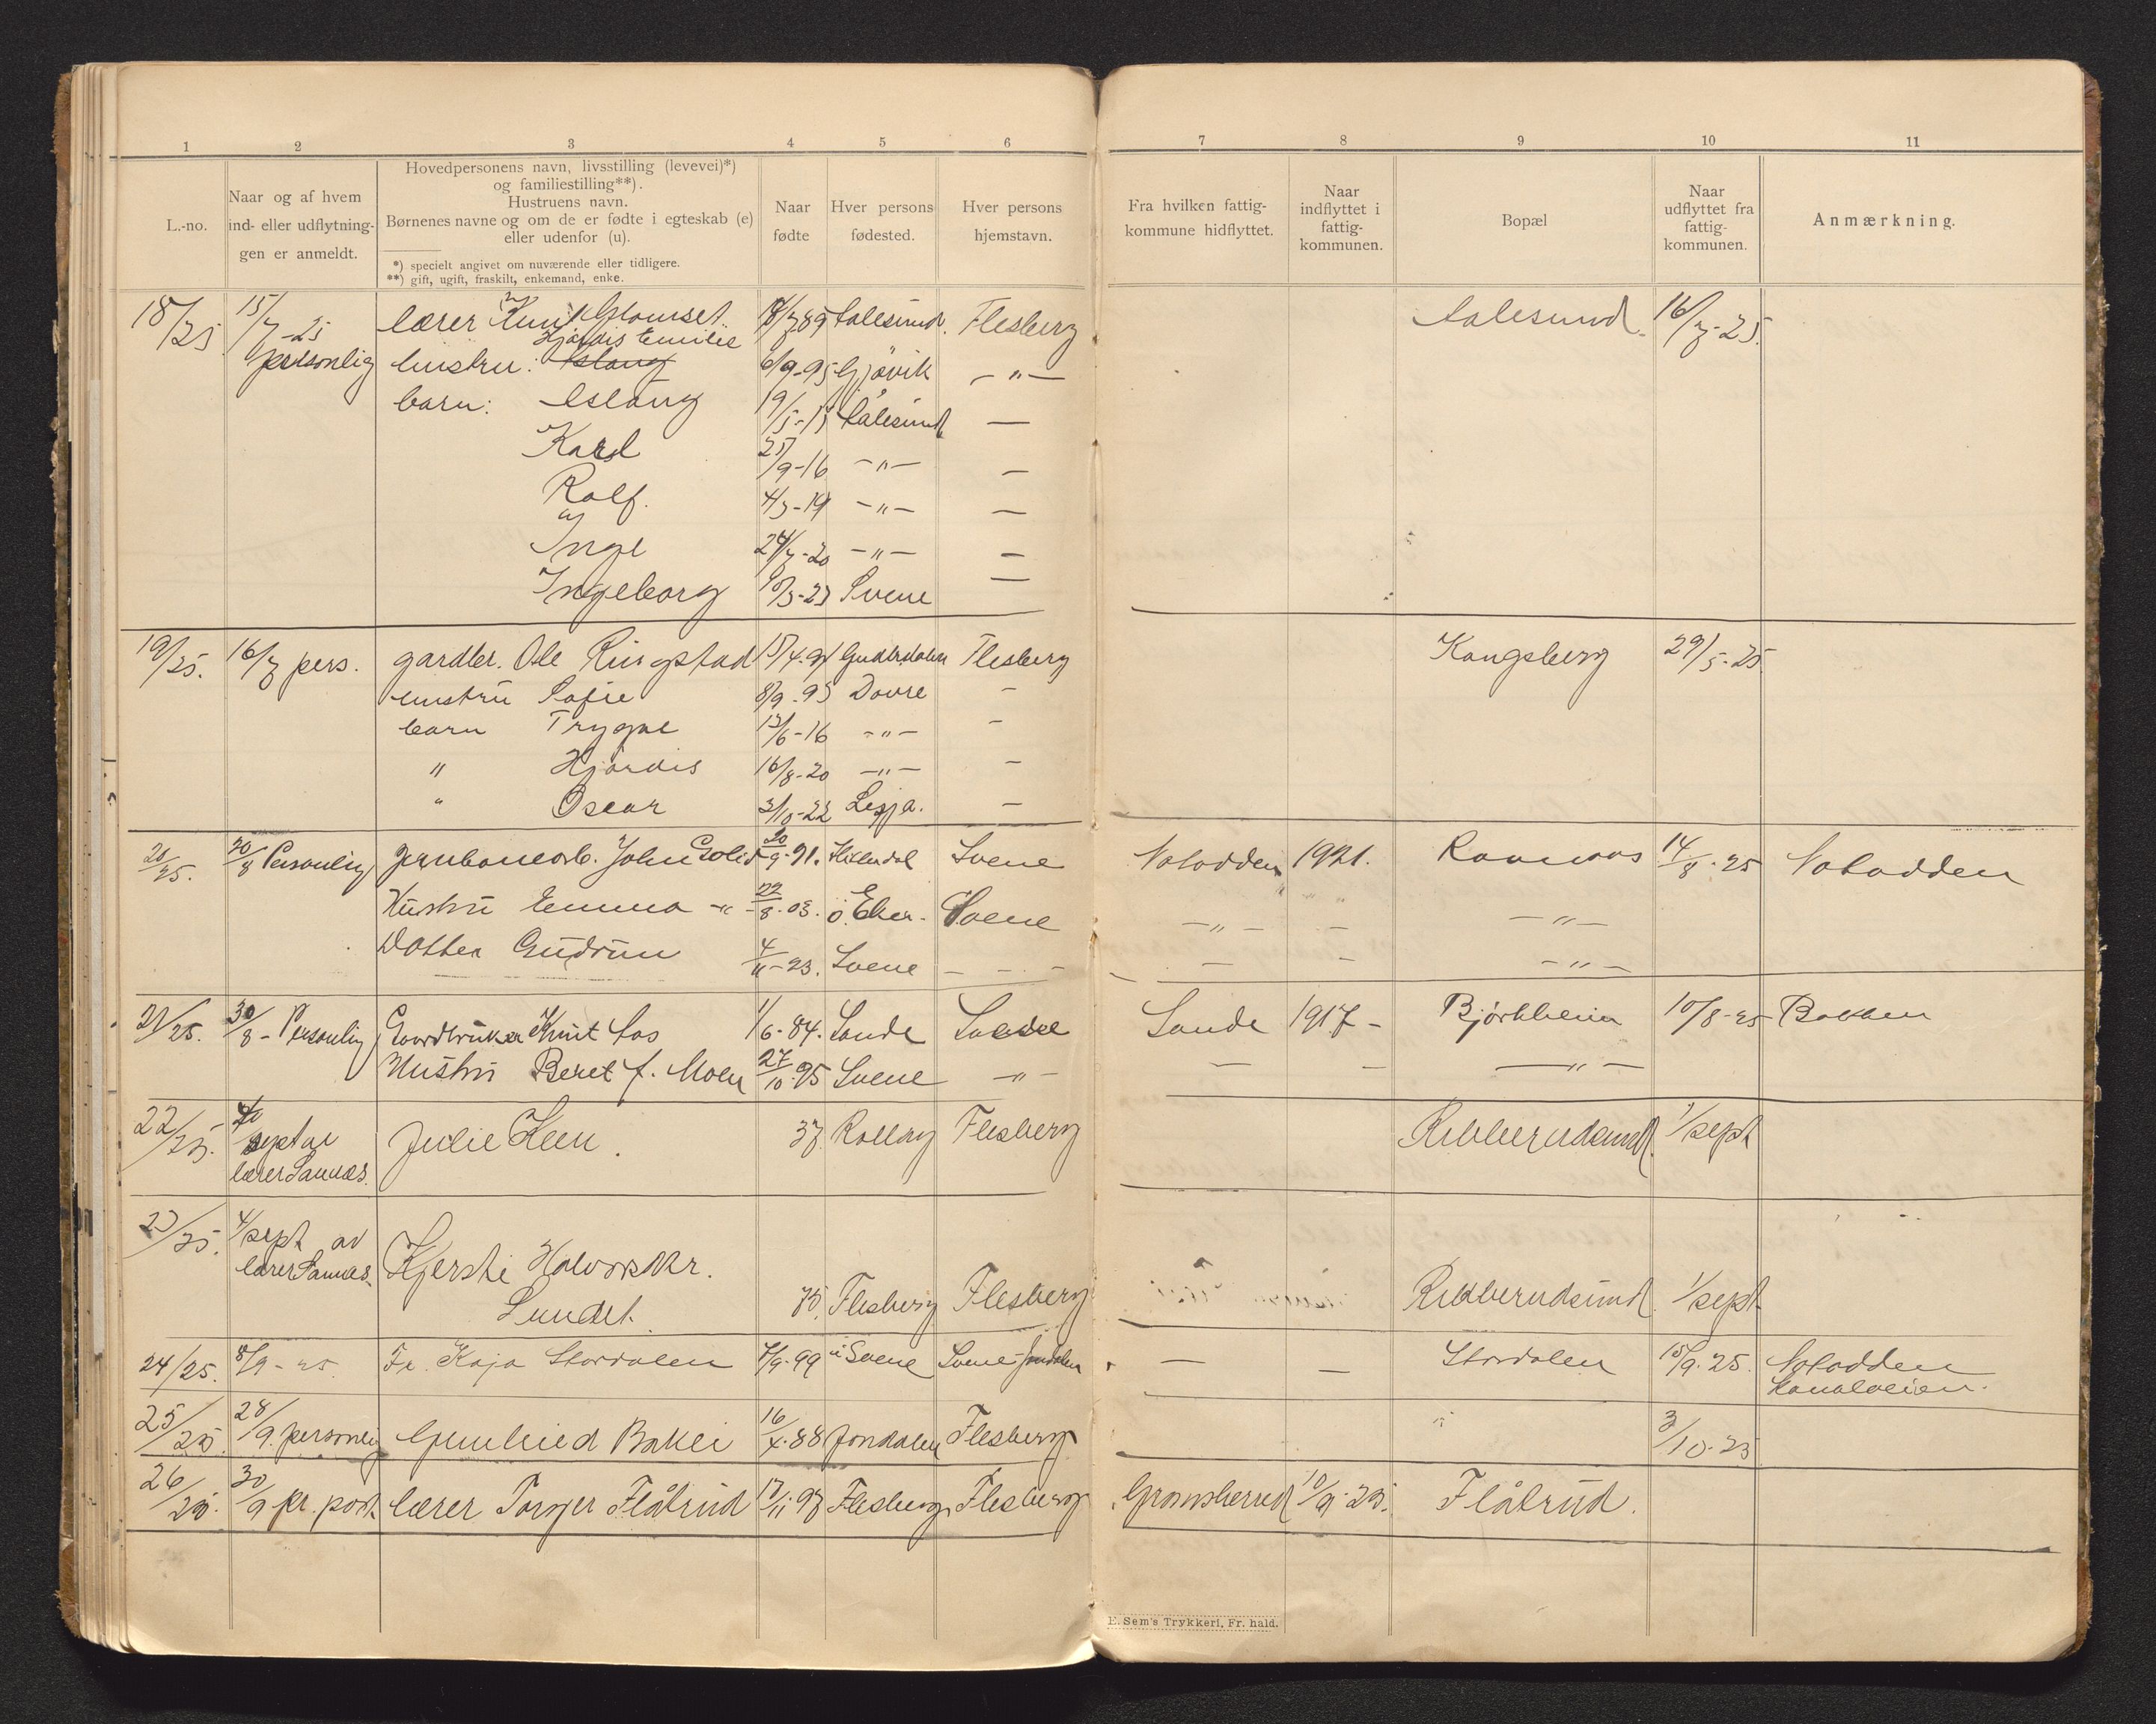 1 2 3 4 5 6 7 8 9 10 11
L.-no.
Naar og af hvem
ind- eller udflytnin-
gen er anmeldt.
Hovedpersonens navn, livsstilling (levevei)*)
og familiestilling**).
Hustruens navn.
Børnenes navne og om de er fødte i egteskab (e)
eller udenfor (u).
*) specielt angivet om nuværende eller tidligere.
**) gift, ugift, fraskilt, enkemand, enke.
Naar
fødte
Hver persons
fødested.
Hver persons
hjemstavn.
Fra hvilken fattig-
kommune hidflyttet.
Naar
indflyttet i
fattig-
kommunen.
Bopæl
Naar
udflyttet fra
fattig-
kommunen.
Anmærkning.
18/25 15/7-25 lærer Knut Glomset 89 Aalesund. Flesberg Aalesund. 16/7-25.
personlig hustru: Hjørdis Emilie Aslaug 6/9-95 Gjøvik -"-
barn: Aslaug 19/5-15 Aalesund —
Karl 25/9-16 -"- —
Rolf. 4/3-19 -"- —
Inge 24/7-20 -"- —
Ingeborg 10/3-23 Svene —
19/25. 16/7 pers. gardbr. Ole Ringstad Gudbr.dalen Flesberg Kongsberg 29/5-25.
hustru Sofie 8/9-95 Dovre -
barn Trygve 12/6-16 -"- -
" Hjørdis 16/8-20 -"- -
" Oscar 3/10-22 Lesja. -
20/25. 20/8 Personlig Jernbanearb. John Golid 20/9-91. Hitterdal Svene Notodden 1921. 14/8-25 Notodden
Hustru Emma -"- 22/8-03. ø. Eker. Svene -"- - -"-
Datter Gudrun 4/11-23. Svene - - - - - -"-
21/25. 30/8- Personlig Gaardbruker Knut Aas 1/6-84. Sande Svene Sande 1917- Bjørkheim 10/8-25 Bakken
Hustru Beret f. Moen 27/10-95 Svene -"- - - -"-
22/25. 4/ sept av lærer Sannes. Julie Keen. 37. Rollag Flesberg Rukkerudsund 1/sept
23/25. 4/sept av lærer Sannes. Kjersti Halvorsdtr.
Lundet. 75. Flesberg Flesberg Rukkerudsund 1/sept.
24/25. 8/9-25 Fr. Kaja Stordalen 7/9-99 i Svene Svene-Jondalen — — Stordalen 15/9.25. Notodden
Kanalveien.
25/25. 28/9. personlig Gunhild Bakli 16/4-88 Jondalen Flesberg 3/10-25
26/25. 30/9 pr. post. lærer Torger Flåtrud 17/11-97 Flesberg Flesberg Gransherred 10/9-25. Flåtrud.
E. Sem's Trykkeri, Fr. hald.